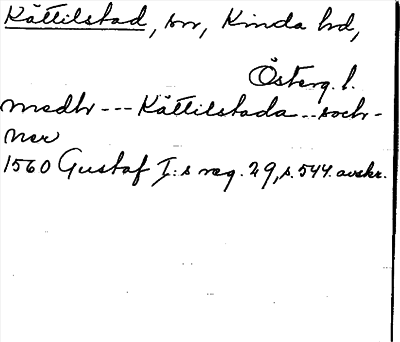 Kättilstad, sn, Kinda hd,
Österg. l.
medhr --- Kättilstada .. sochr-
ner
1560 Gustaf I:s reg. 29, s. 544. avskr.